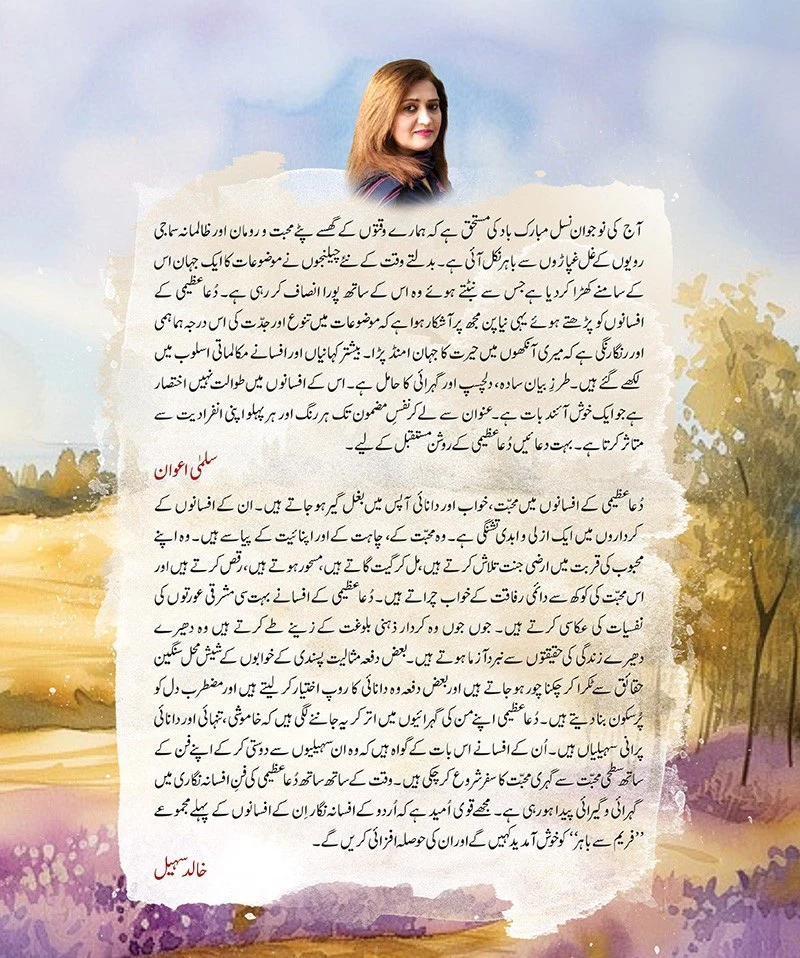 آج کی نوجوان نسل مبارک باد کی مستحق ہے کہ ہمارے وقتوں کے گھسے پٹے محبت و رومان اور ظالمانہ سماجی
رویوں کے غل غپاڑوں سے باہر نکل آئی ہے۔ بدلتے وقت کے نئے چیلنجوں نے موضوعات کا ایک جہان اس
کے سامنے کھڑا کر دیا ہے جس سے نبٹتے ہوئے وہ اس کے ساتھ پورا انصاف کر رہی ہے۔ دُعا عظیمی کے
افسانوں کو پڑھتے ہوئے یہی نیا پن مجھ پر آشکار ہوا ہے کہ موضوعات میں تنوع اور جدّت کی اس درجہ ہما ہمی
اور رنگا رنگی ہے کہ میری آنکھوں میں حیرت کا جہان امنڈ پڑا۔ بیشتر کہانیاں اور افسانے مکالماتی اسلوب میں
لکھے گئے ہیں۔ طرزِ بیان سادہ، دلچسپ اور گہرائی کا حامل ہے۔ اس کے افسانوں میں طوالت نہیں اختصار
ہے جو ایک خوش آئند بات ہے۔ عنوان سے لے کر نفسِ مضمون تک ہر رنگ اور ہر پہلو اپنی انفرادیت سے
متاثر کرتا ہے۔ بہت دعائیں دُعا عظیمی کے روشن مستقبل کے لیے۔
سلمٰی اعوان
دُعا عظیمی کے افسانوں میں محبّت، خواب اور دانائی آپس میں بغل گیر ہو جاتے ہیں۔ ان کے افسانوں کے
کرداروں میں ایک ازلی و ابدی تشنگی ہے۔ وہ محبّت کے، چاہت کے اور اپنائیت کے پیاسے ہیں۔ وہ اپنے
محبوب کی قربت میں ارضی جنت تلاش کرتے ہیں، مل کر گیت گاتے ہیں، مسحور ہوتے ہیں، رقص کرتے ہیں اور
اس محبّت کی کوکھ سے دائمی رفاقت کے خواب چراتے ہیں۔ دُعا عظیمی کے افسانے بہت سی مشرقی عورتوں کی
نفسیات کی عکاسی کرتے ہیں۔ جوں جوں وہ کردار ذہنی بلوغت کے زینے طے کرتے ہیں وہ دھیرے
دھیرے زندگی کی حقیقتوں سے نبرد آزما ہوتے ہیں۔ بعض دفعہ مثالیت پسندی کے خوابوں کے شیش محل سنگین
حقائق سے ٹکرا کر چکنا چور ہو جاتے ہیں اور بعض دفعہ وہ دانائی کا روپ اختیار کر لیتے ہیں اور مضطرب دل کو
پُرسکون بنا دیتے ہیں۔ دُعا عظیمی اپنے من کی گہرائیوں میں اتر کر یہ جاننے لگی ہیں کہ خاموشی، تنہائی اور دانائی
پرانی سہیلیاں ہیں۔ اُن کے افسانے اس بات کے گواہ ہیں کہ وہ ان سہیلیوں سے دوستی کر کے اپنے فن کے
ساتھ سطحی محبّت سے گہری محبّت کا سفر شروع کر چکی ہیں۔ وقت کے ساتھ ساتھ دُعا عظیمی کی فنِ افسانہ نگاری میں
گہرائی و گیرائی پیدا ہو رہی ہے۔ مجھے قوی اُمید ہے کہ اُردو کے افسانہ نگار اِن کے افسانوں کے پہلے مجموعے
’’فریم سے باہر‘‘ کو خوش آمدید کہیں گے اور ان کی حوصلہ افزائی کریں گے۔
خالد سہیل